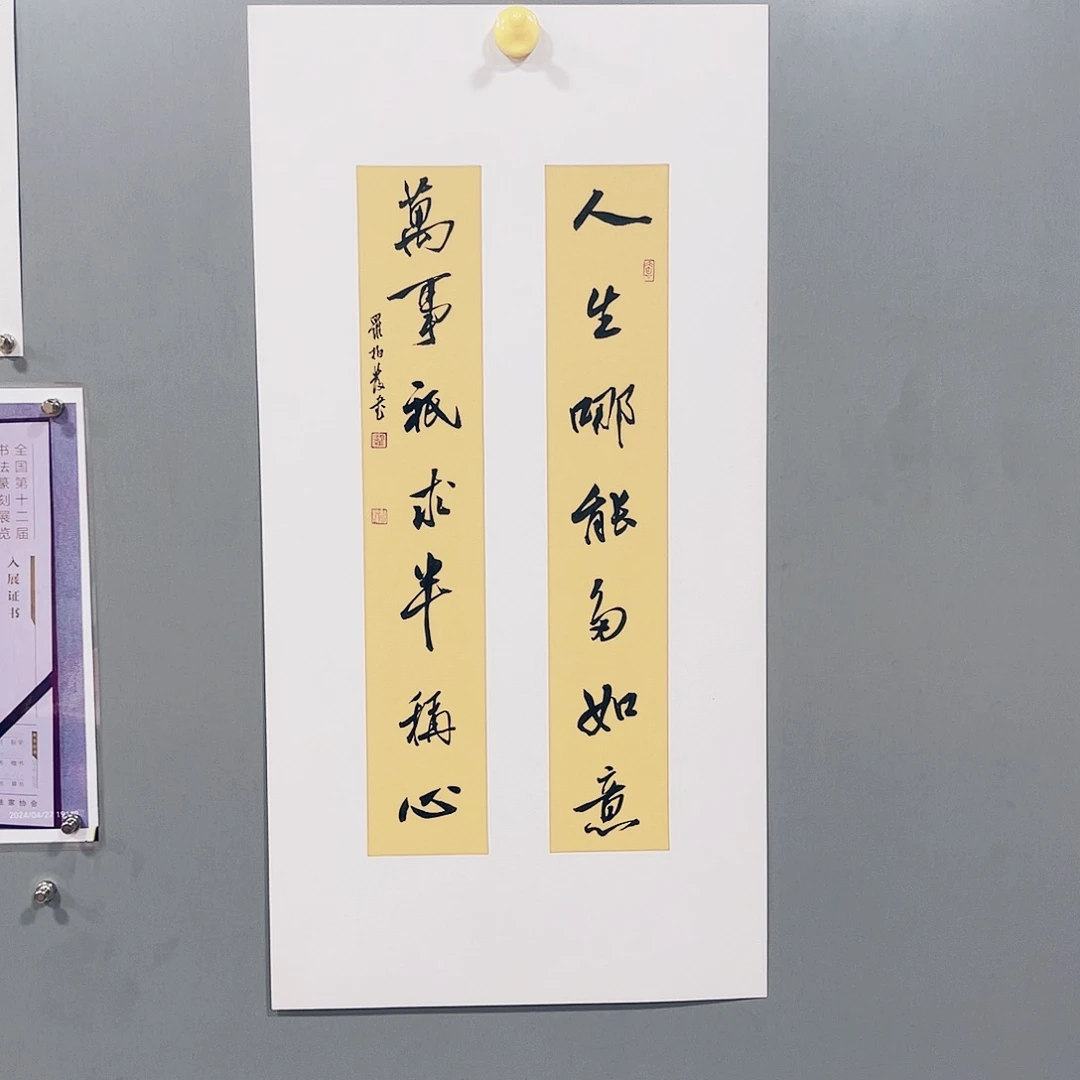 人生哪能多如意
萬事祇求半稱心
全国第十二届
书法篆刻展览
入展证书
家协会
2024/04/27 19: